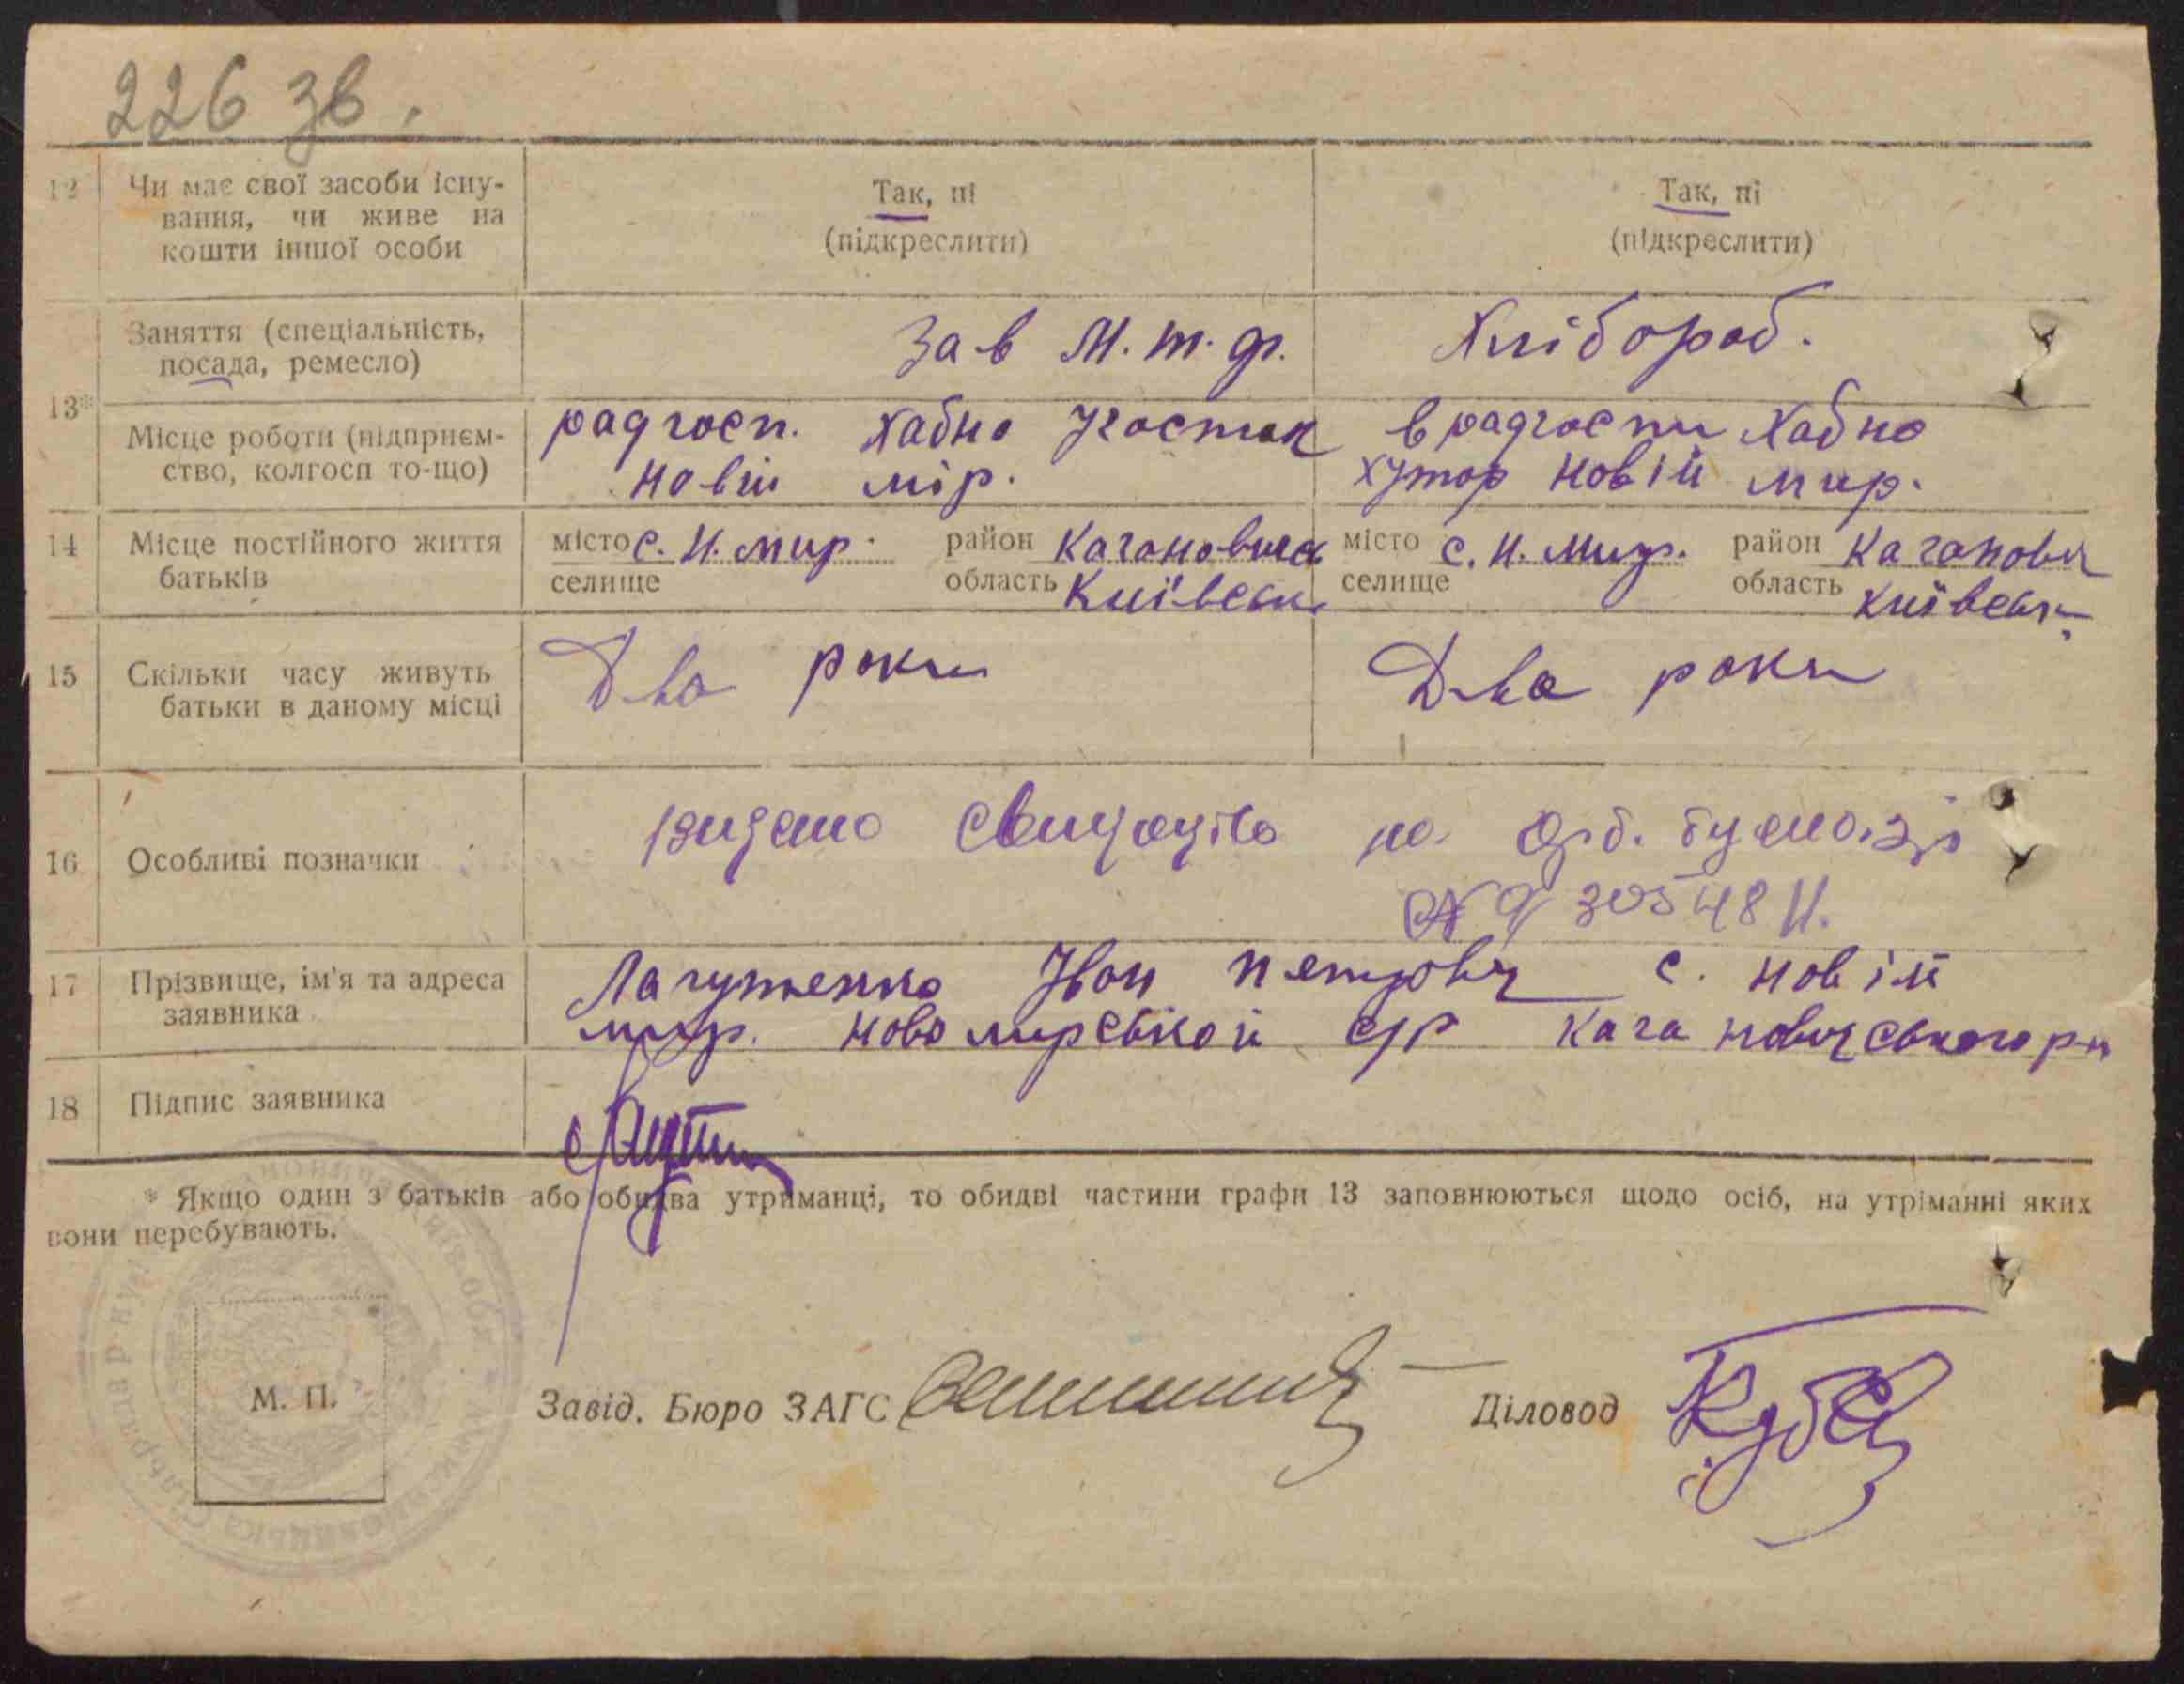 226 зв.
12 Чи має свої засоби існу- Так, ні Так, ні
вання, чи живе на (підкреслити) (підкреслити)
кошти іншої особи
Заняття (спеціальність, Зав М. т. ф. Хлібороб.
посада, ремесло)
13*
Місце роботи (підприєм- радгосп. Хабно Участок в радгоспи Хабно
ство, колгосп то-що) Новій мір. хутор Новій мир.
14 Місце постійного життя місто с. Н. мир. район Каганович місто с. Н. мир. район Каганович
батьків селище область Київськ селище область Київськ
15 Скільки часу живуть Два роки Два роки
батьки в даному місці
16 Особливі позначки видано на бумазі
30548
17 Прізвище, ім'я та адреса Лагутенко Іван Петрович с. Новій
заявника мир. Новомирськой с/р Кагановичського рн
18 Підпис заявника
* Якщо один з батьків або обидва утриманці, то обидві частини графи 13 заповнюються щодо осіб, на утріманні яких
вони перебувають.
М. П.
Завід. Бюро ЗАГС Діловод